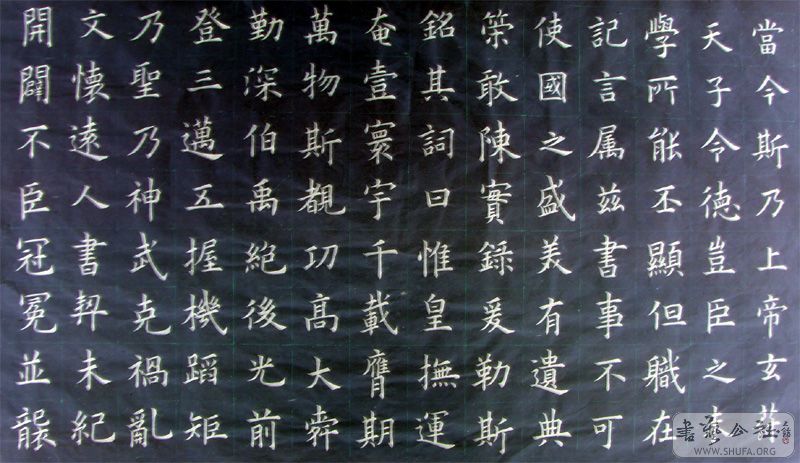 當今斯乃上帝玄苻
天子令德豈臣之末
學所能丕顯但職在
記言属兹書事不可
使國之盛美有遺典
策敢陳實錄爰勒斯
銘其詞曰惟皇撫運
奄壹寰宇千載膺期
萬物斯覩功高大舜
勤深伯禹絕後光前
登三邁五握機蹈矩
乃聖乃神武克禍亂
文懷遠人書契未紀
開闢不臣冠冕並襲
書藝公社
WWW.SHUFA.ORG